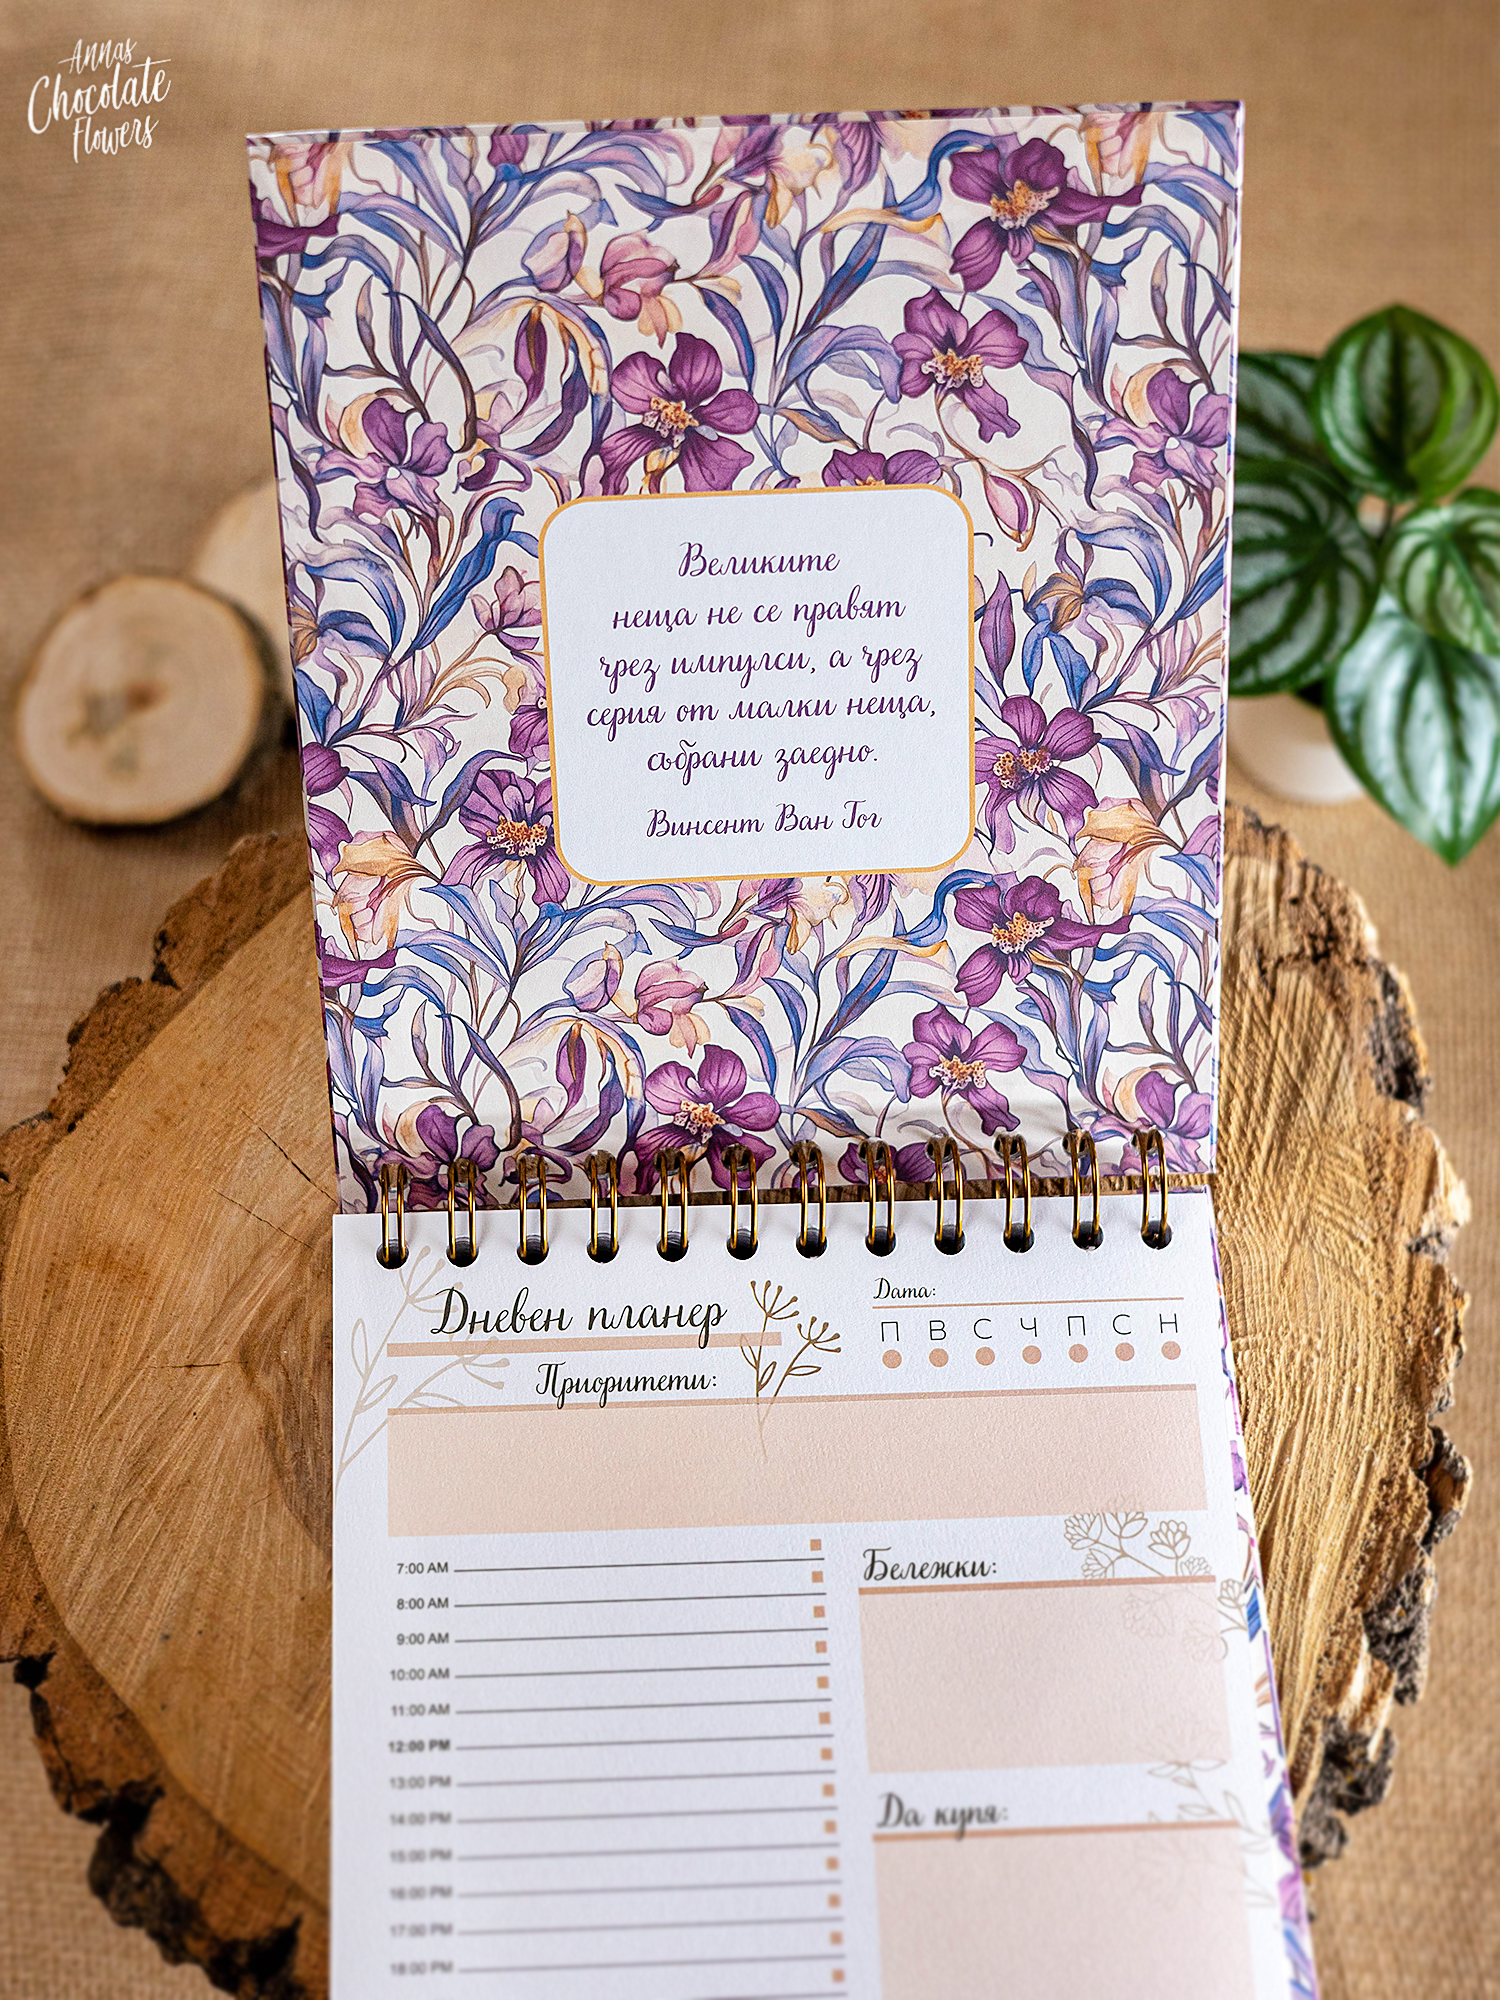 Annas
Chocolate
Flowers
Великите
неща не се правят
чрез импулси, а чрез
серия от малки неща,
събрани заедно.
Винсент Ван Гог
Дневен планер
Дата:
П В С Ч П С Н
Приоритети:
7:00 AM
8:00 AM
9:00 AM
10:00 AM
11:00 AM
12:00 PM
13:00 PM
14:00 PM
15:00 PM
16:00 PM
17:00 PM
18:00 PM
Бележки:
Да купя: